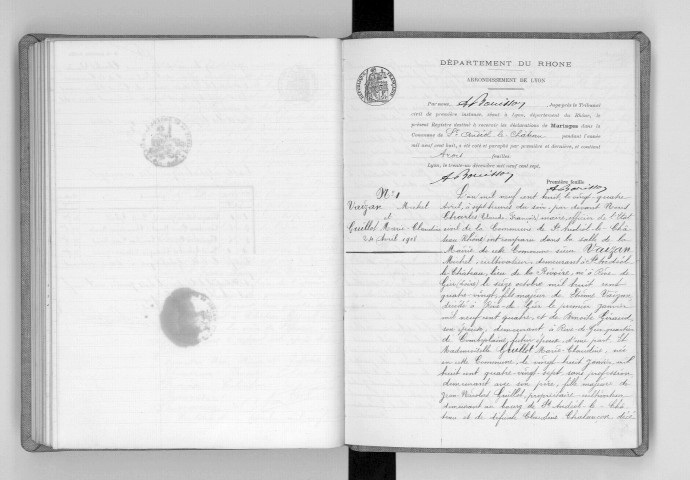 DÉPARTEMENT DU RHONE
ARRONDISSEMENT DE LYON
Par nous, juge près le Tribunal
civil de première instance, séant à Lyon, département du Rhône, le
présent Registre destiné à recevoir les déclarations de Mariages dans la
Commune de St Andéol-le-Château pendant l'année
mil neuf cent huit, a été coté et paraphé par première et dernière, et contient
trois feuilles.
Lyon, le trente-un décembre mil neuf cent sept.
Première feuille
N° 1
Vaizan Michel
et
Guillot Marie-Claudine
24 Avril 1908
L'an mil neuf cent huit, le vingt-quatre
Avril, à sept heures du soir, par devant Nous
Charles Claude François, maire, officier de l'Etat
civil de la Commune de St Andéol-le-Châ-
teau Rhône, ont comparu dans la salle de la
Mairie de cette Commune sieur Vaizan
Michel, cultivateur, demeurant à St Andéol
le Château, lieu de la Rivoire, né à Rive de
Gier (Loire) le seize octobre mil huit cent
quatre-vingt, fils majeur de Vaizan,
décédé à Rive de Gier le premier janvier
mil neuf cent quatre, et de Benoîte Giraud,
son épouse, demeurant à Rive de Gier, quartier
de Combeplaine, futur époux, d'une part. Et
Mademoiselle Guillot Marie-Claudine, née
en cette Commune, le vingt huit janvier mil
huit cent quatre-vingt-sept, sans profession,
demeurant avec son père, fille majeure de
Jean Guillot, propriétaire cultivateur
demeurant au bourg de St Andéol-le-Châ-
teau et de défunte Claudine